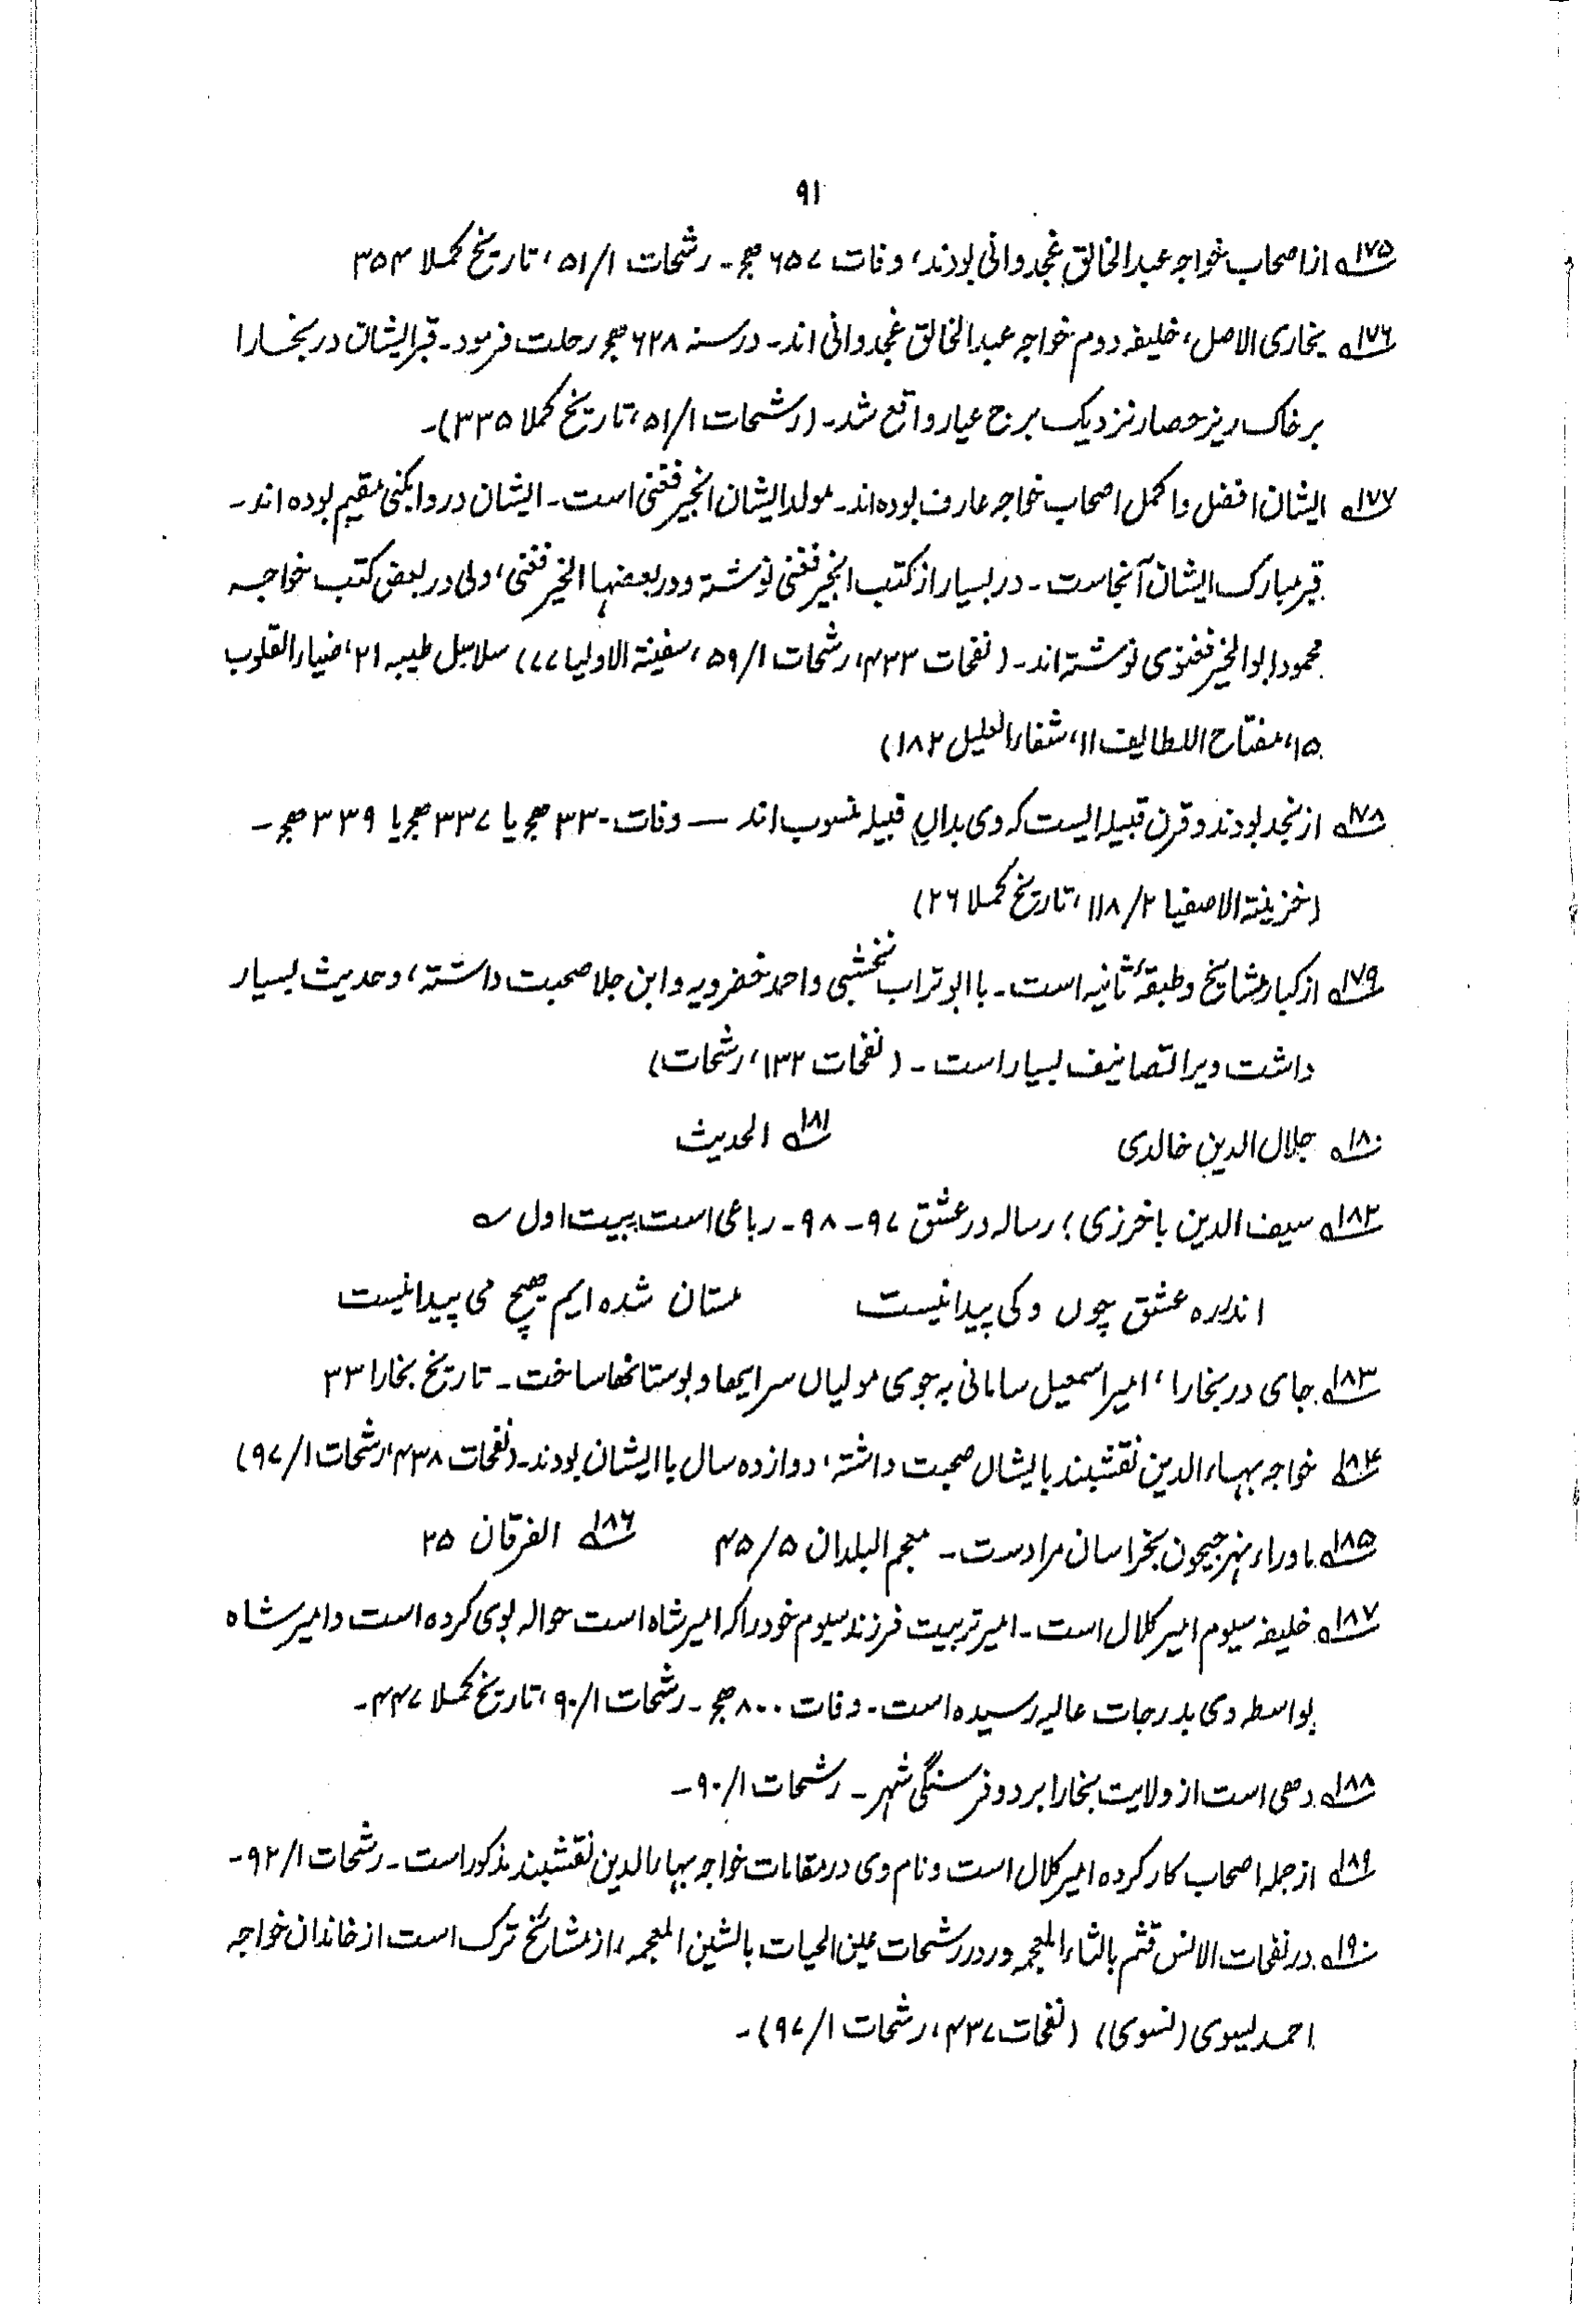 ۹۱
۱۷۵ ازاصحاب خواجہ عبدالخالق غجدوانی بودند، وفات ۶۵۷ھج۔ رشحات ۵۱/۱، تاریخ کملا ۳۵۴
۱۷۶ بخاری الاصل، خلیفہ دوم خواجہ عبدالخالق غجدوانی اند۔ درسنہ ۶۲۸ھج رحلت فرمود۔ قبرایشان دربخارا
برخاک ریز حصار نزدیک برج عیار واقع شد۔ (رشحات ۵۱/۱، تاریخ کملا ۳۳۵)۔
۱۷۷ ایشان افضل واکمل اصحاب خواجہ عارف بودہ اند۔ مولد ایشان انجیر فغنی است۔ ایشان درواِبکنی مقیم بودہ اند۔
قبر مبارک ایشان آنجاست۔ دربسیار از کتب انجیر فغنی نوشتہ ودربعضہا الخیر فغنی، ولی دربعض کتب خواجہ
محمود ابوالخیر فغنوی نوشتہ اند۔ (نفحات ۴۳۳، رشحات ۵۹/۱، سفینۃ الاولیا ۷۷) سلاسل طیبہ ۲۱، ضیاءالقلوب
۱۵، مفتاح اللطایف ۱۱، شفاءالعلیل ۱۸۲)
۱۷۸ ازنجد بودند وقرن قبیلہ ایست کہ وی بداں قبیلہ منسوب اند — وفات ۳۳۰ھج یا ۳۳۷ھج یا ۳۳۹ھج۔
(خزینۃ الاصفیا ۱۱۸/۲، تاریخ کملا ۲۶)
۱۷۹ ازکبار مشایخ وطبقۂ ثانیہ است۔ با ابوتراب نخشبی واحمد خضرویہ وابن جلا صحبت داشتہ، وحدیث بسیار
داشت ویرا تصانیف بسیاراست۔ (نفحات ۱۳۲، رشحات)
۱۸۰ جلال الدین خالدی ۱۸۱ الحدیث
۱۸۲ سیف الدین باخرزی؛ رسالہ درعشق ۹۷-۹۸۔ رباعی است بیت اول ؎
اندرہ عشق چوں وکی پیدانیست مستان شدہ ایم ھیچ می پیدانیست
۱۸۳ جای دربخارا، امیر اسمعیل سامانی بہ جوی مولیاں سرایھا وبوستانھا ساخت۔ تاریخ بخارا ۳۳
۱۸۴ خواجہ بہاءالدین نقشبند بایشاں صحبت داشتہ، دوازدہ سال باایشان بودند۔ (نفحات ۴۳۸، رشحات ۹۷/۱)
۱۸۵ ماوراء نہر جیحون بخراسان مرادست۔ معجم البلدان ۴۵/۵ ۱۸۶ الفرقان ۲۵
۱۸۷ خلیفہ سیوم امیرکلال است۔ امیر تربیت فرزند سیوم خود را کہ امیر شاہ است حوالہ بوی کردہ است وامیر شاہ
بواسطہ وی بدرجات عالیہ رسیدہ است۔ وفات ۸۰۰ھج۔ رشحات ۹۰/۱، تاریخ کملا ۴۴۷۔
۱۸۸ دھی است از ولایت بخارا بر دو فرسنگی شہر۔ رشحات ۹۰/۱۔
۱۸۹ ازجملہ اصحاب کار کردہ امیر کلال است ونام وی درمقامات خواجہ بہاءالدین نقشبند مذکوراست۔ رشحات ۹۲/۱۔
۱۹۰ درنفحات الانس قثم بالثاء المعجمہ ودررشحات عین الحیات بالشین المعجمہ، از مشائخ ترک است از خاندان خواجہ
احمد لیسوی (نسوی) (نفحات ۴۳۷، رشحات ۹۷/۱)۔